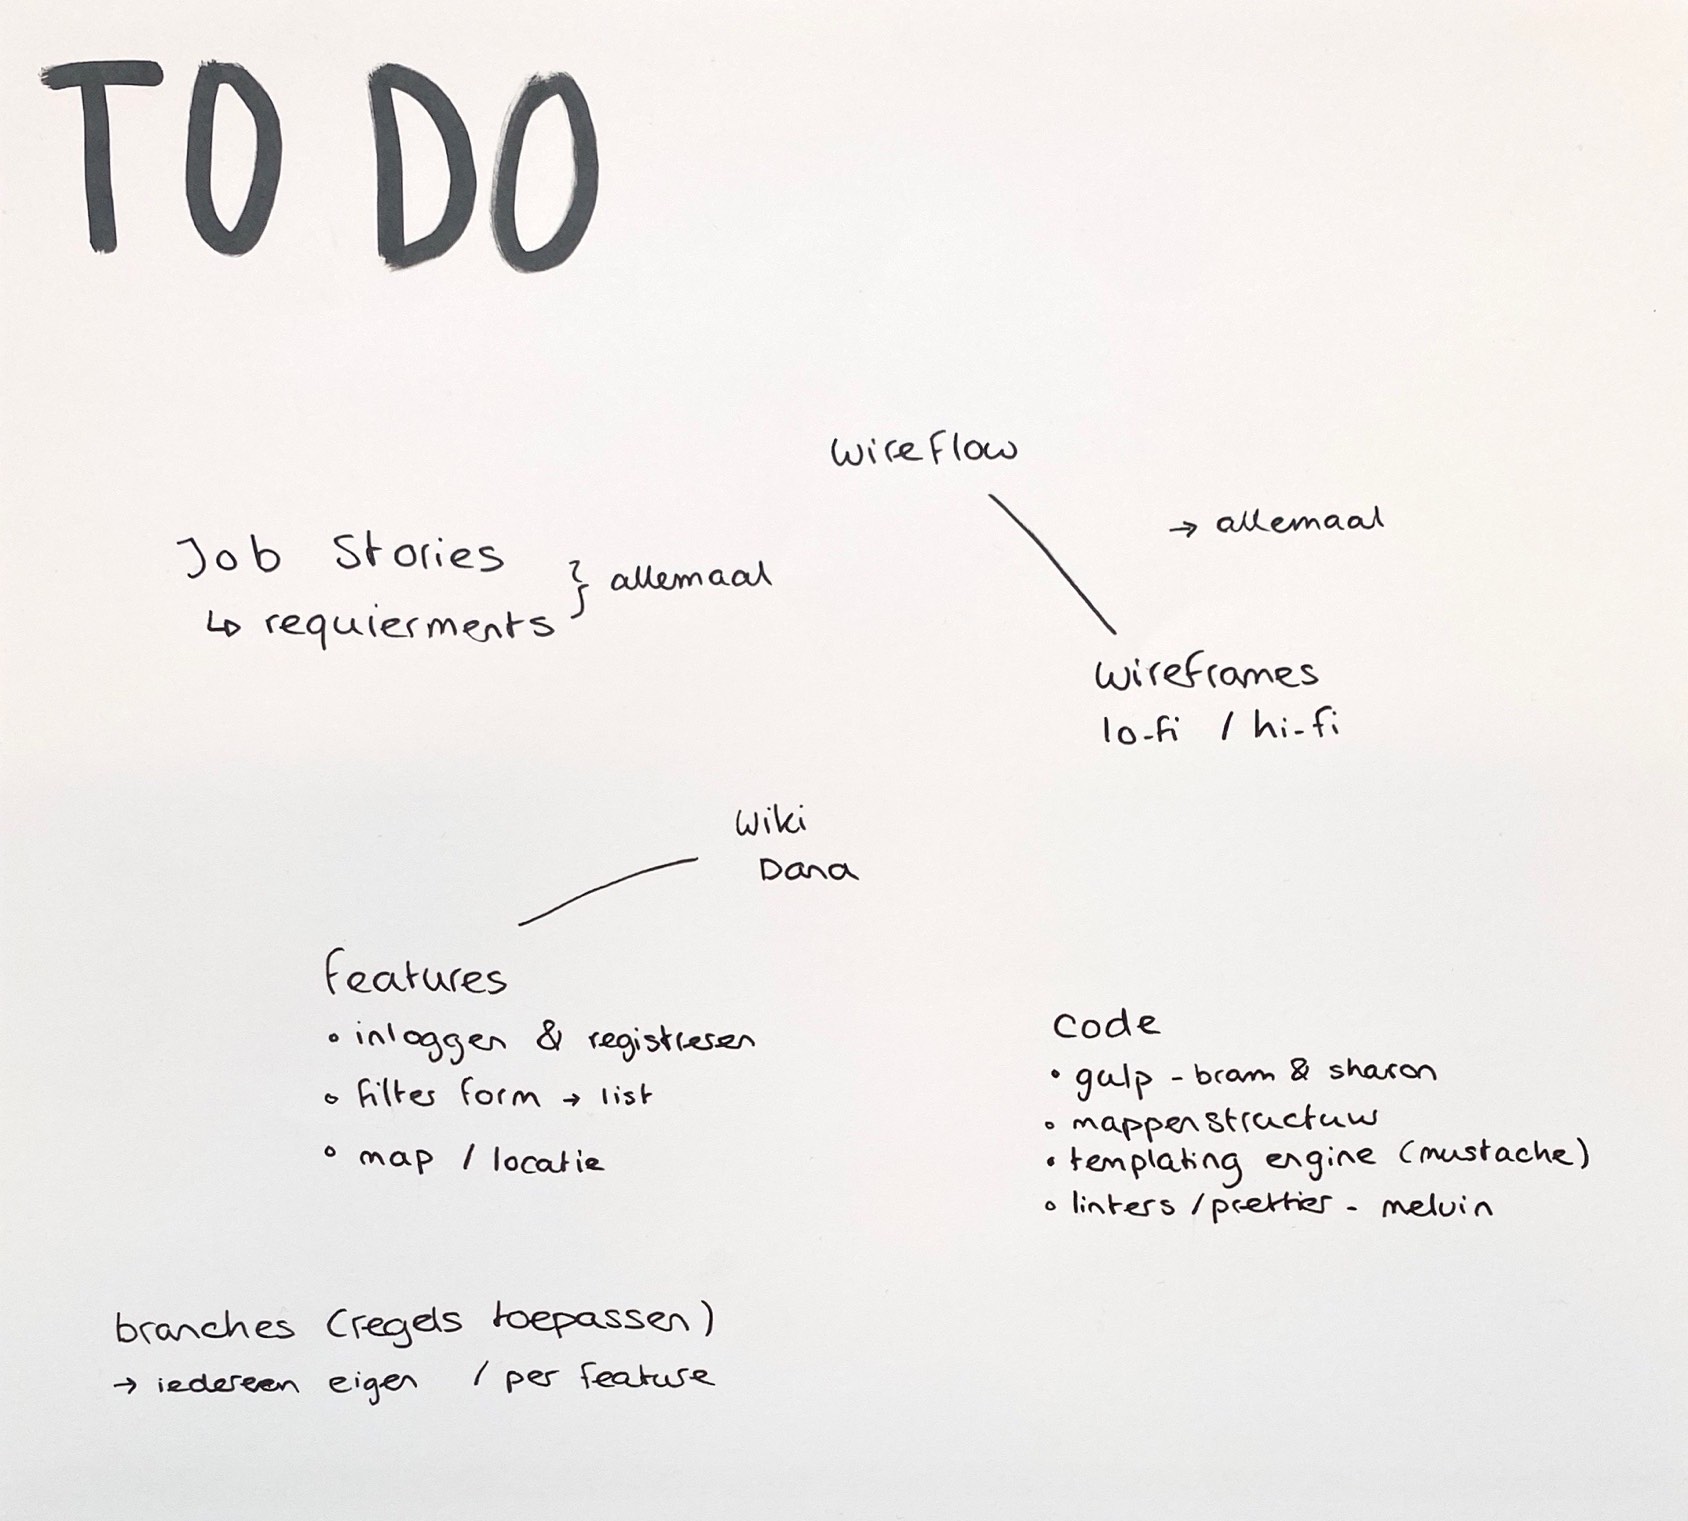 TO DO
wireflow
→ allemaal
Job Stories
↳ requierments } allemaal
wireframes
lo-fi / hi-fi
wiki
Dana
features
• inloggen & registreren
• filter form → list
• map / locatie
code
• gulp - bram & sharon
• mappenstructuur
• templating engine (mustache)
• linters / prettier - melvin
branches (regels toepassen)
→ iedereen eigen / per feature